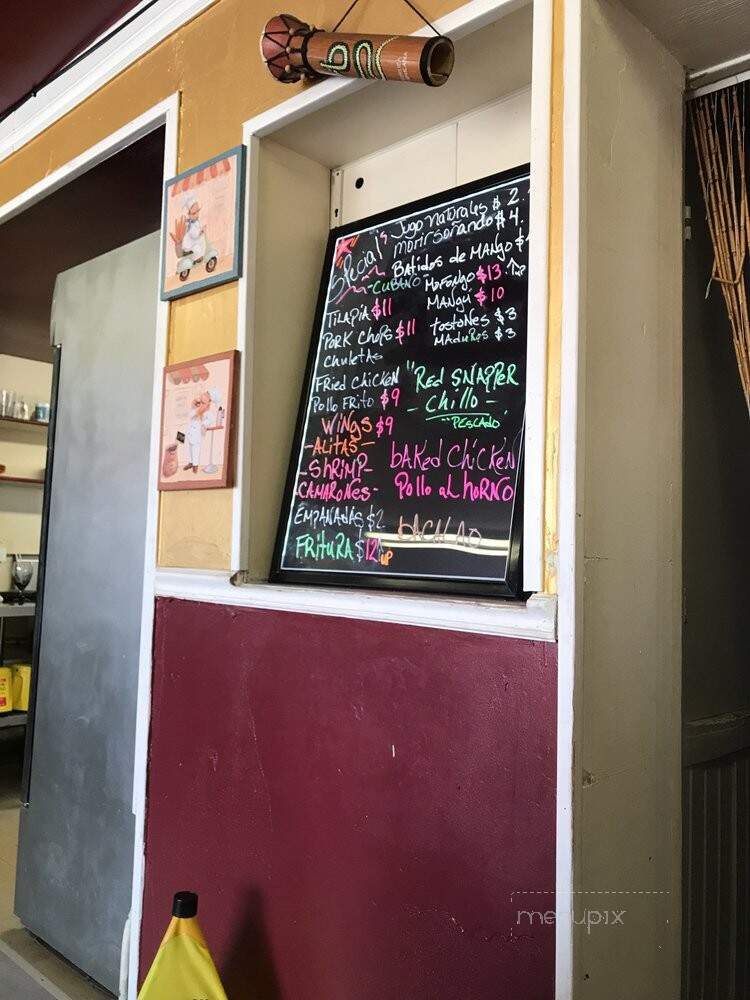 Special's
Jugo naturales $ 2.
morir soñando $ 4.
Batidos de Mango $
CUBANO
Mofongo $13 up
MANGU $10
tostones $3
MADUROS $3
TILAPIA $11
PORK Chops $11
Chuletas
FRied Chicken
Pollo FRito $9
WiNgs $9
- ALITAS -
- ShRIMP -
- CAMARONES -
EMPANADAS $2
FRituRA $12 up
"Red SNAPPER
- Chillo -
"PESCADO"
bAKed ChicKeN
Pollo al hoRNO
bACALAO
menupix